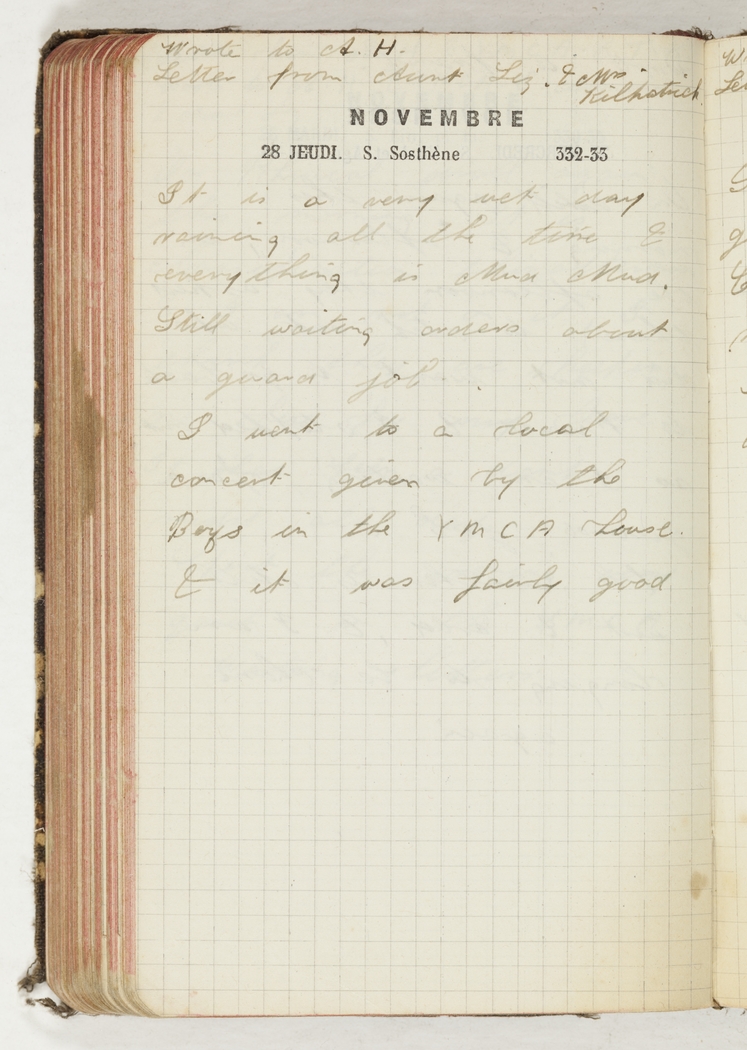 Wrote to A. H.
Letter from Aunt Liz. & Mrs
Kilpatrick.
NOVEMBRE
28 JEUDI. S. Sosthène 332-33
It is a very wet day
raining all the time &
everything is Mud Mud.
Still waiting orders about
a guard job.
I went to a local
concert given by the
Boys in the YMCA house.
& it was fairly good